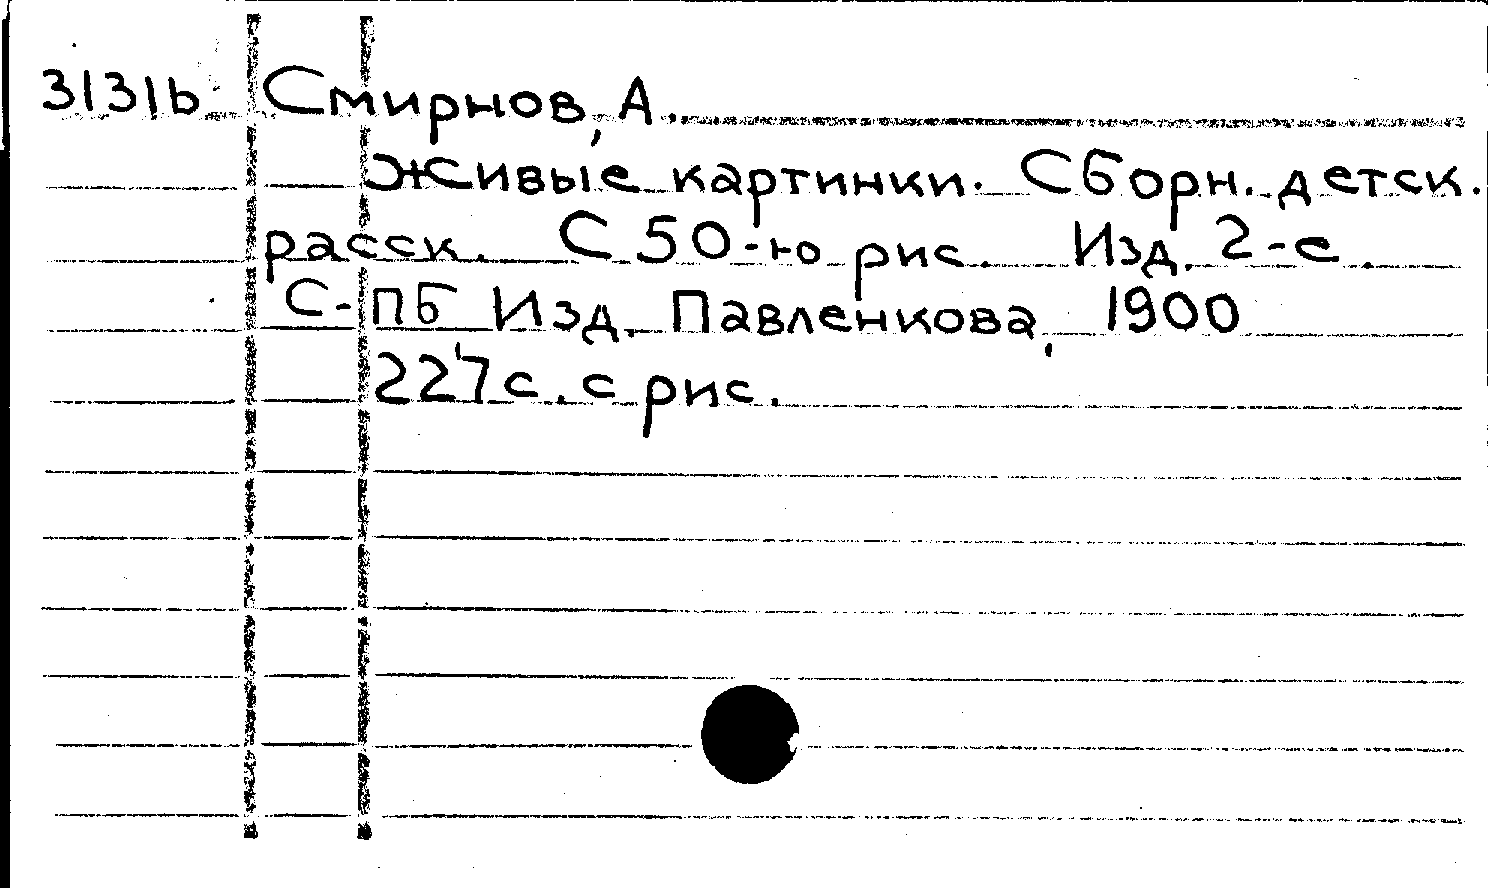 3131b Смирнов, А.
Живые картинки. Сборн. детск.
расск. С 50-ю рис. Изд. 2-е.
С-ПБ Изд. Павленкова, 1900
227 с. с рис.